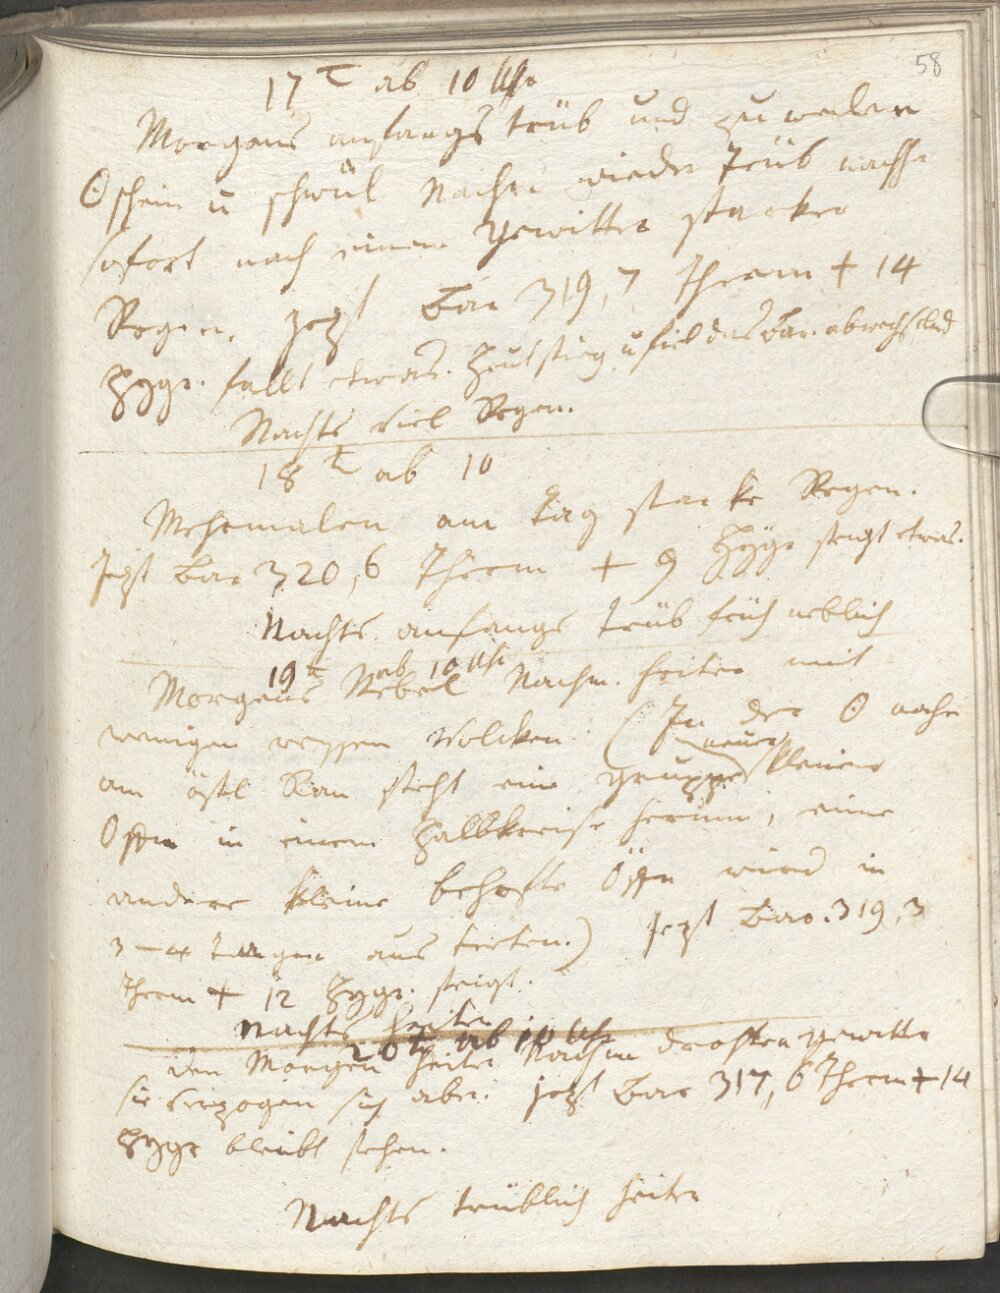 58
17 t ab 10 Uhr
Morgens anfangs trüb und zuweilen
☉schein u schwül Nachm wieder trüb nachh
sofort nach einem Gewitter starker
Regen. Jezt Bar 319,7 Therm + 14
Hygr. fällt etwas. Heut stieg u fiel das Bar. abwechselnd
Nachts viel Regen.
18 t ab 10
Mehrmalen am Tag starke Regen.
Jezt Bar 320,6 Therm + 9 Hygr steigt etwas.
Nachts anfangs trüb früh neblich
19 t ab 10 Uhr
Morgens Nebel Nachm. heiter mit
wenigen Wolcken. (In der ☉ nahe
am östl Ran steht eine neue Gruppe kleiner
in einem Halbkreise herum, eine
andere kleine behofte wird in
3 – 4 Tagen aus tretten.) Jezt Baro. 319,3
Therm + 12 Hygr. steigt.
Nachts heiter
20 t ab 10 Uhr
den Morgen heiter Nachm drohten Gewitter
sie verzogen sich aber. Jezt Bar 317,6 Therm + 14
Hygr bleibt stehen.
Nachts trüblich heiter